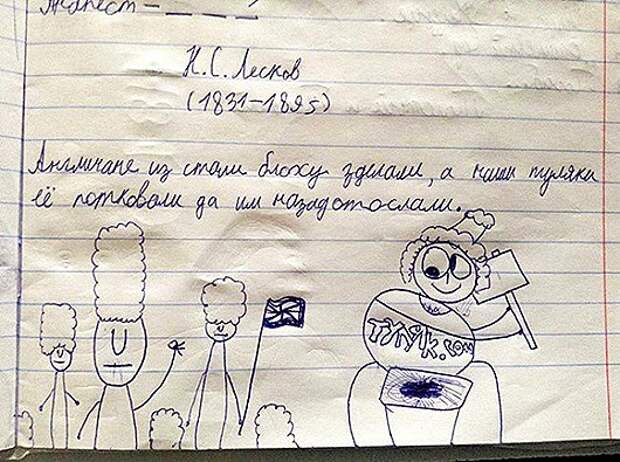 Анапест –
Н. С. Лесков
(1831-1895)
Англичане из стали блоху зделали, а наши туляки
её потковали да им назадотослали.
ТУЛЯК.com